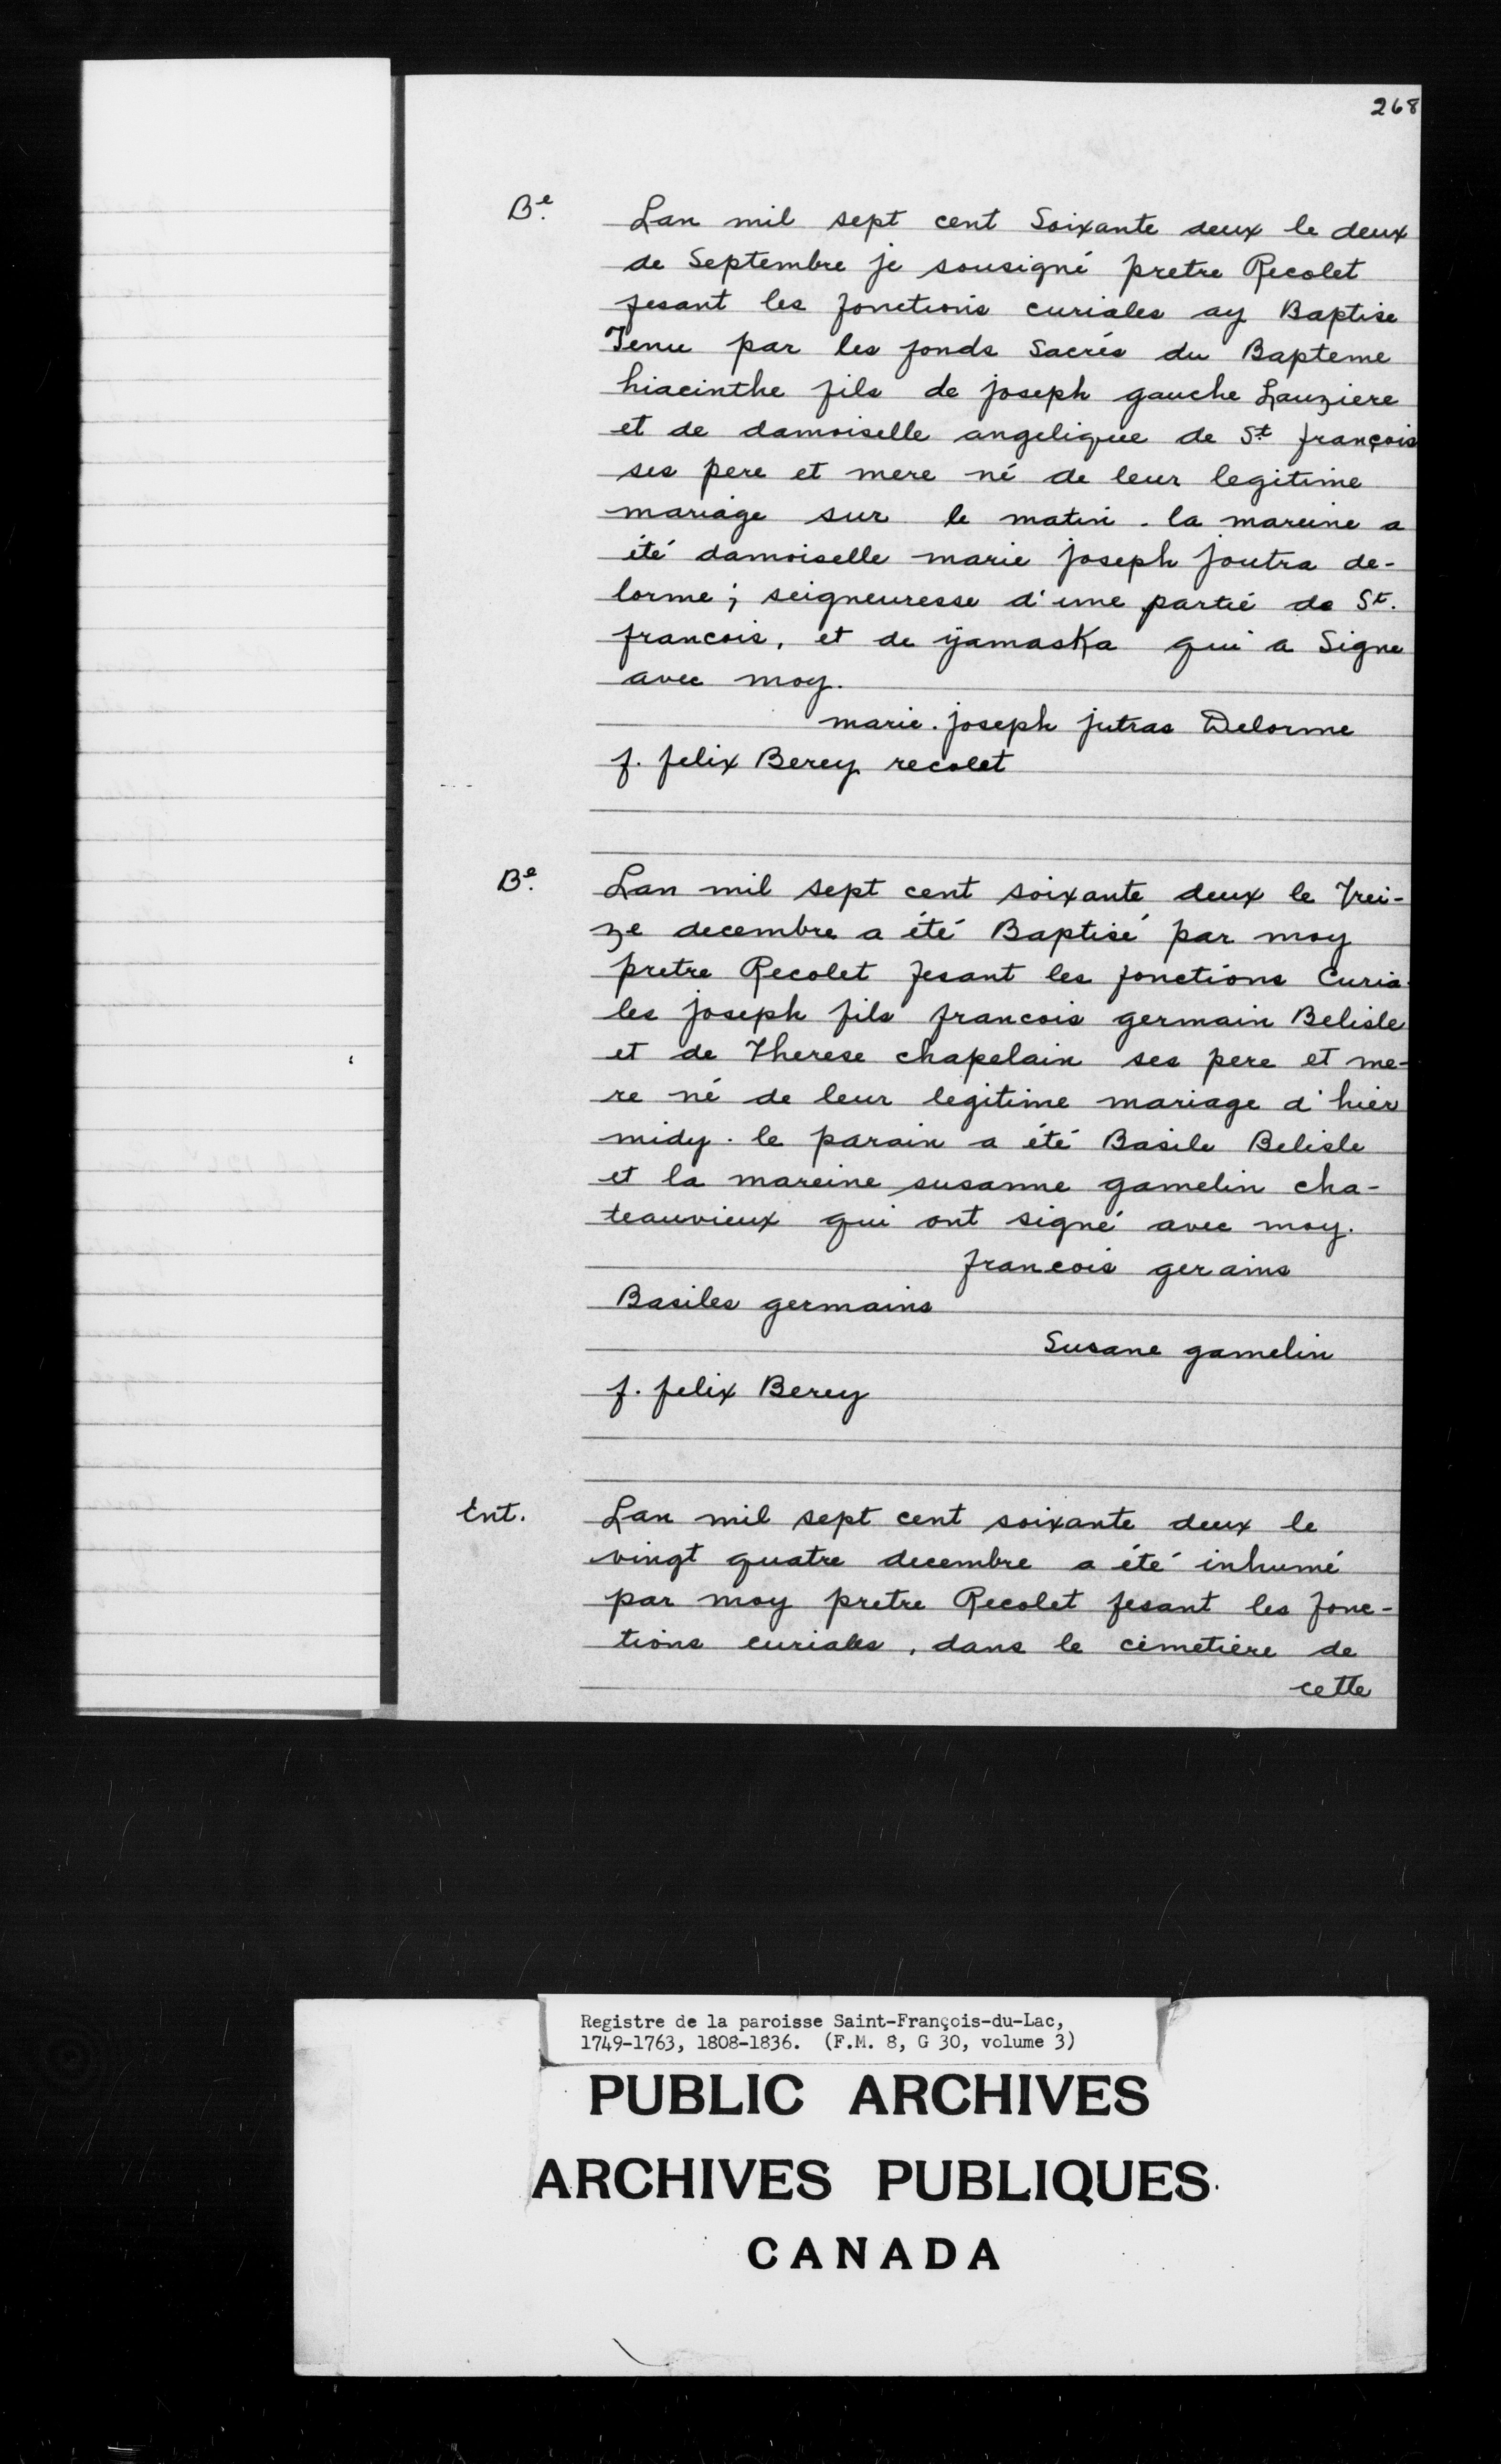 268
Be. Lan mil sept cent Soixante deux le deux
de Septembre je sousigné pretre Recolet
fesant les fonctions curiales ay Baptise
Tenu par les fonds Sacrés du Bapteme
hiacinthe fils de joseph gauche Lauziere
et de damoiselle angelique de St françois
ses pere et mere né de leur legitime
mariage sur le matin. la mareine a
été damoiselle marie joseph joutra de-
lorme; seigneuresse d'une partié de St.
francois, et de ÿamaska qui a Signe
avec moy.
marie. joseph jutras Delorme
f. felix Berey recolet
Be. Lan mil sept cent soixante deux le Trei-
ze decembre a été Baptisé par moy
pretre Recolet fesant les fonctions Curia-
les joseph fils francois germain Belisle
et de Therese chapelain ses pere et me-
re né de leur legitime mariage d'hier
midy. le parain a été Basile Belisle
et la mareine susanne gamelin cha-
teauvieux qui ont signé avec moy.
francois gerains
Basiles germains
Susane gamelin
f. felix Berey
Ent. Lan mil sept cent soixante deux le
vingt quatre decembre a été inhumé
par moy pretre Recolet fesant les fonc-
tions curiales, dans le cimetière de
cette
Registre de la paroisse Saint-François-du-Lac,
1749-1763, 1808-1836. (F.M. 8, G 30, volume 3)
PUBLIC ARCHIVES
ARCHIVES PUBLIQUES
CANADA